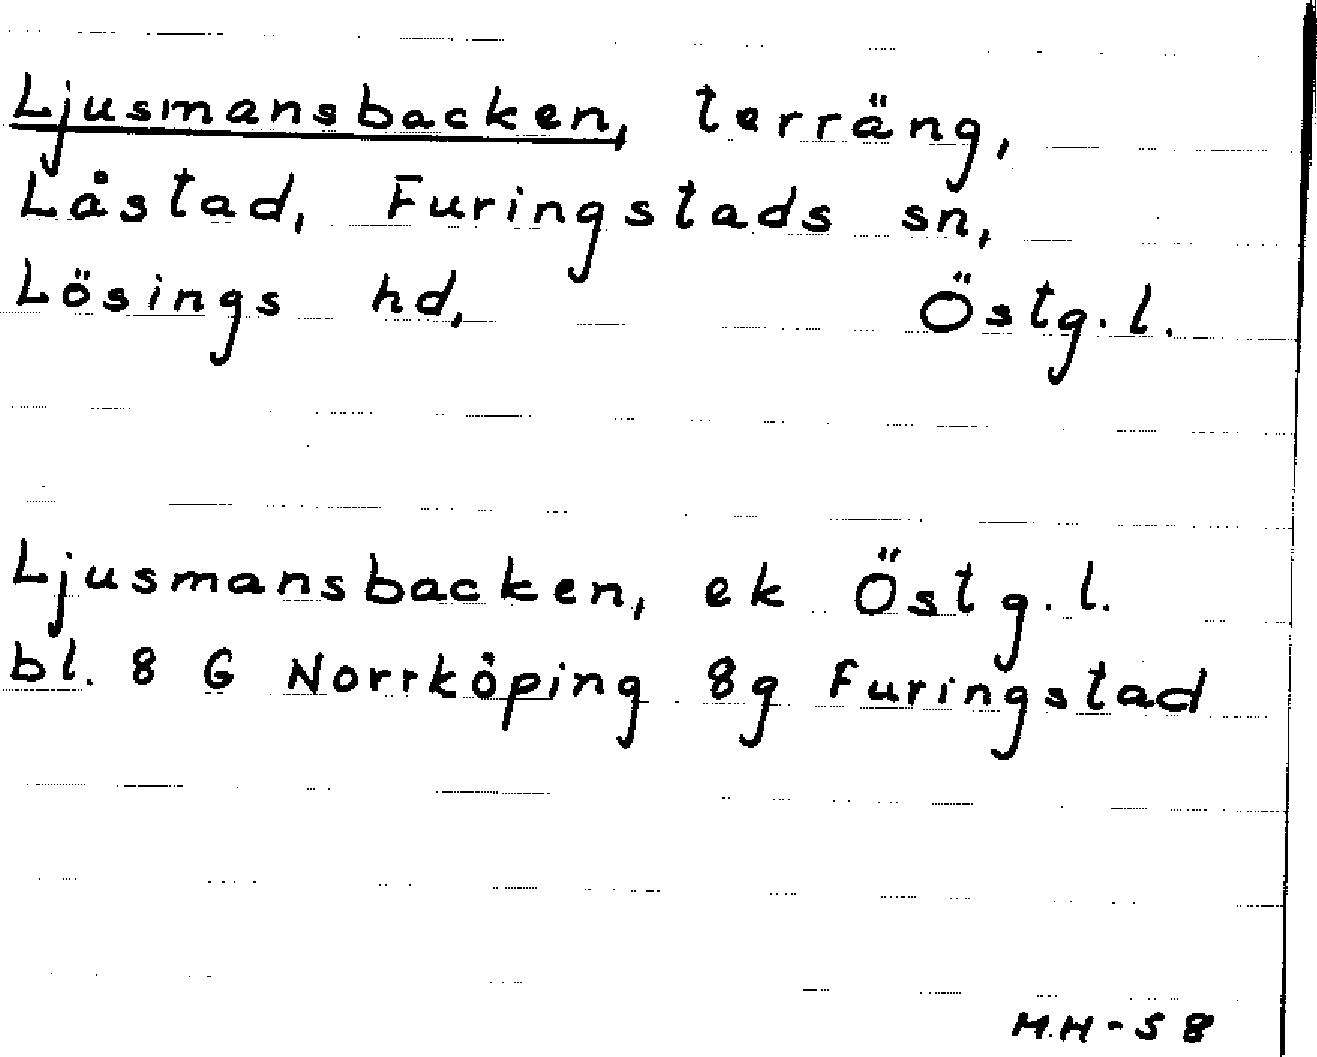 Ljusmansbacken, terräng,
Låstad, Furingstads sn,
Lösings hd, Östg. l.
Ljusmansbacken, ek Östg. l.
bl. 8 G Norrköping 8g Furingstad
M.H-58